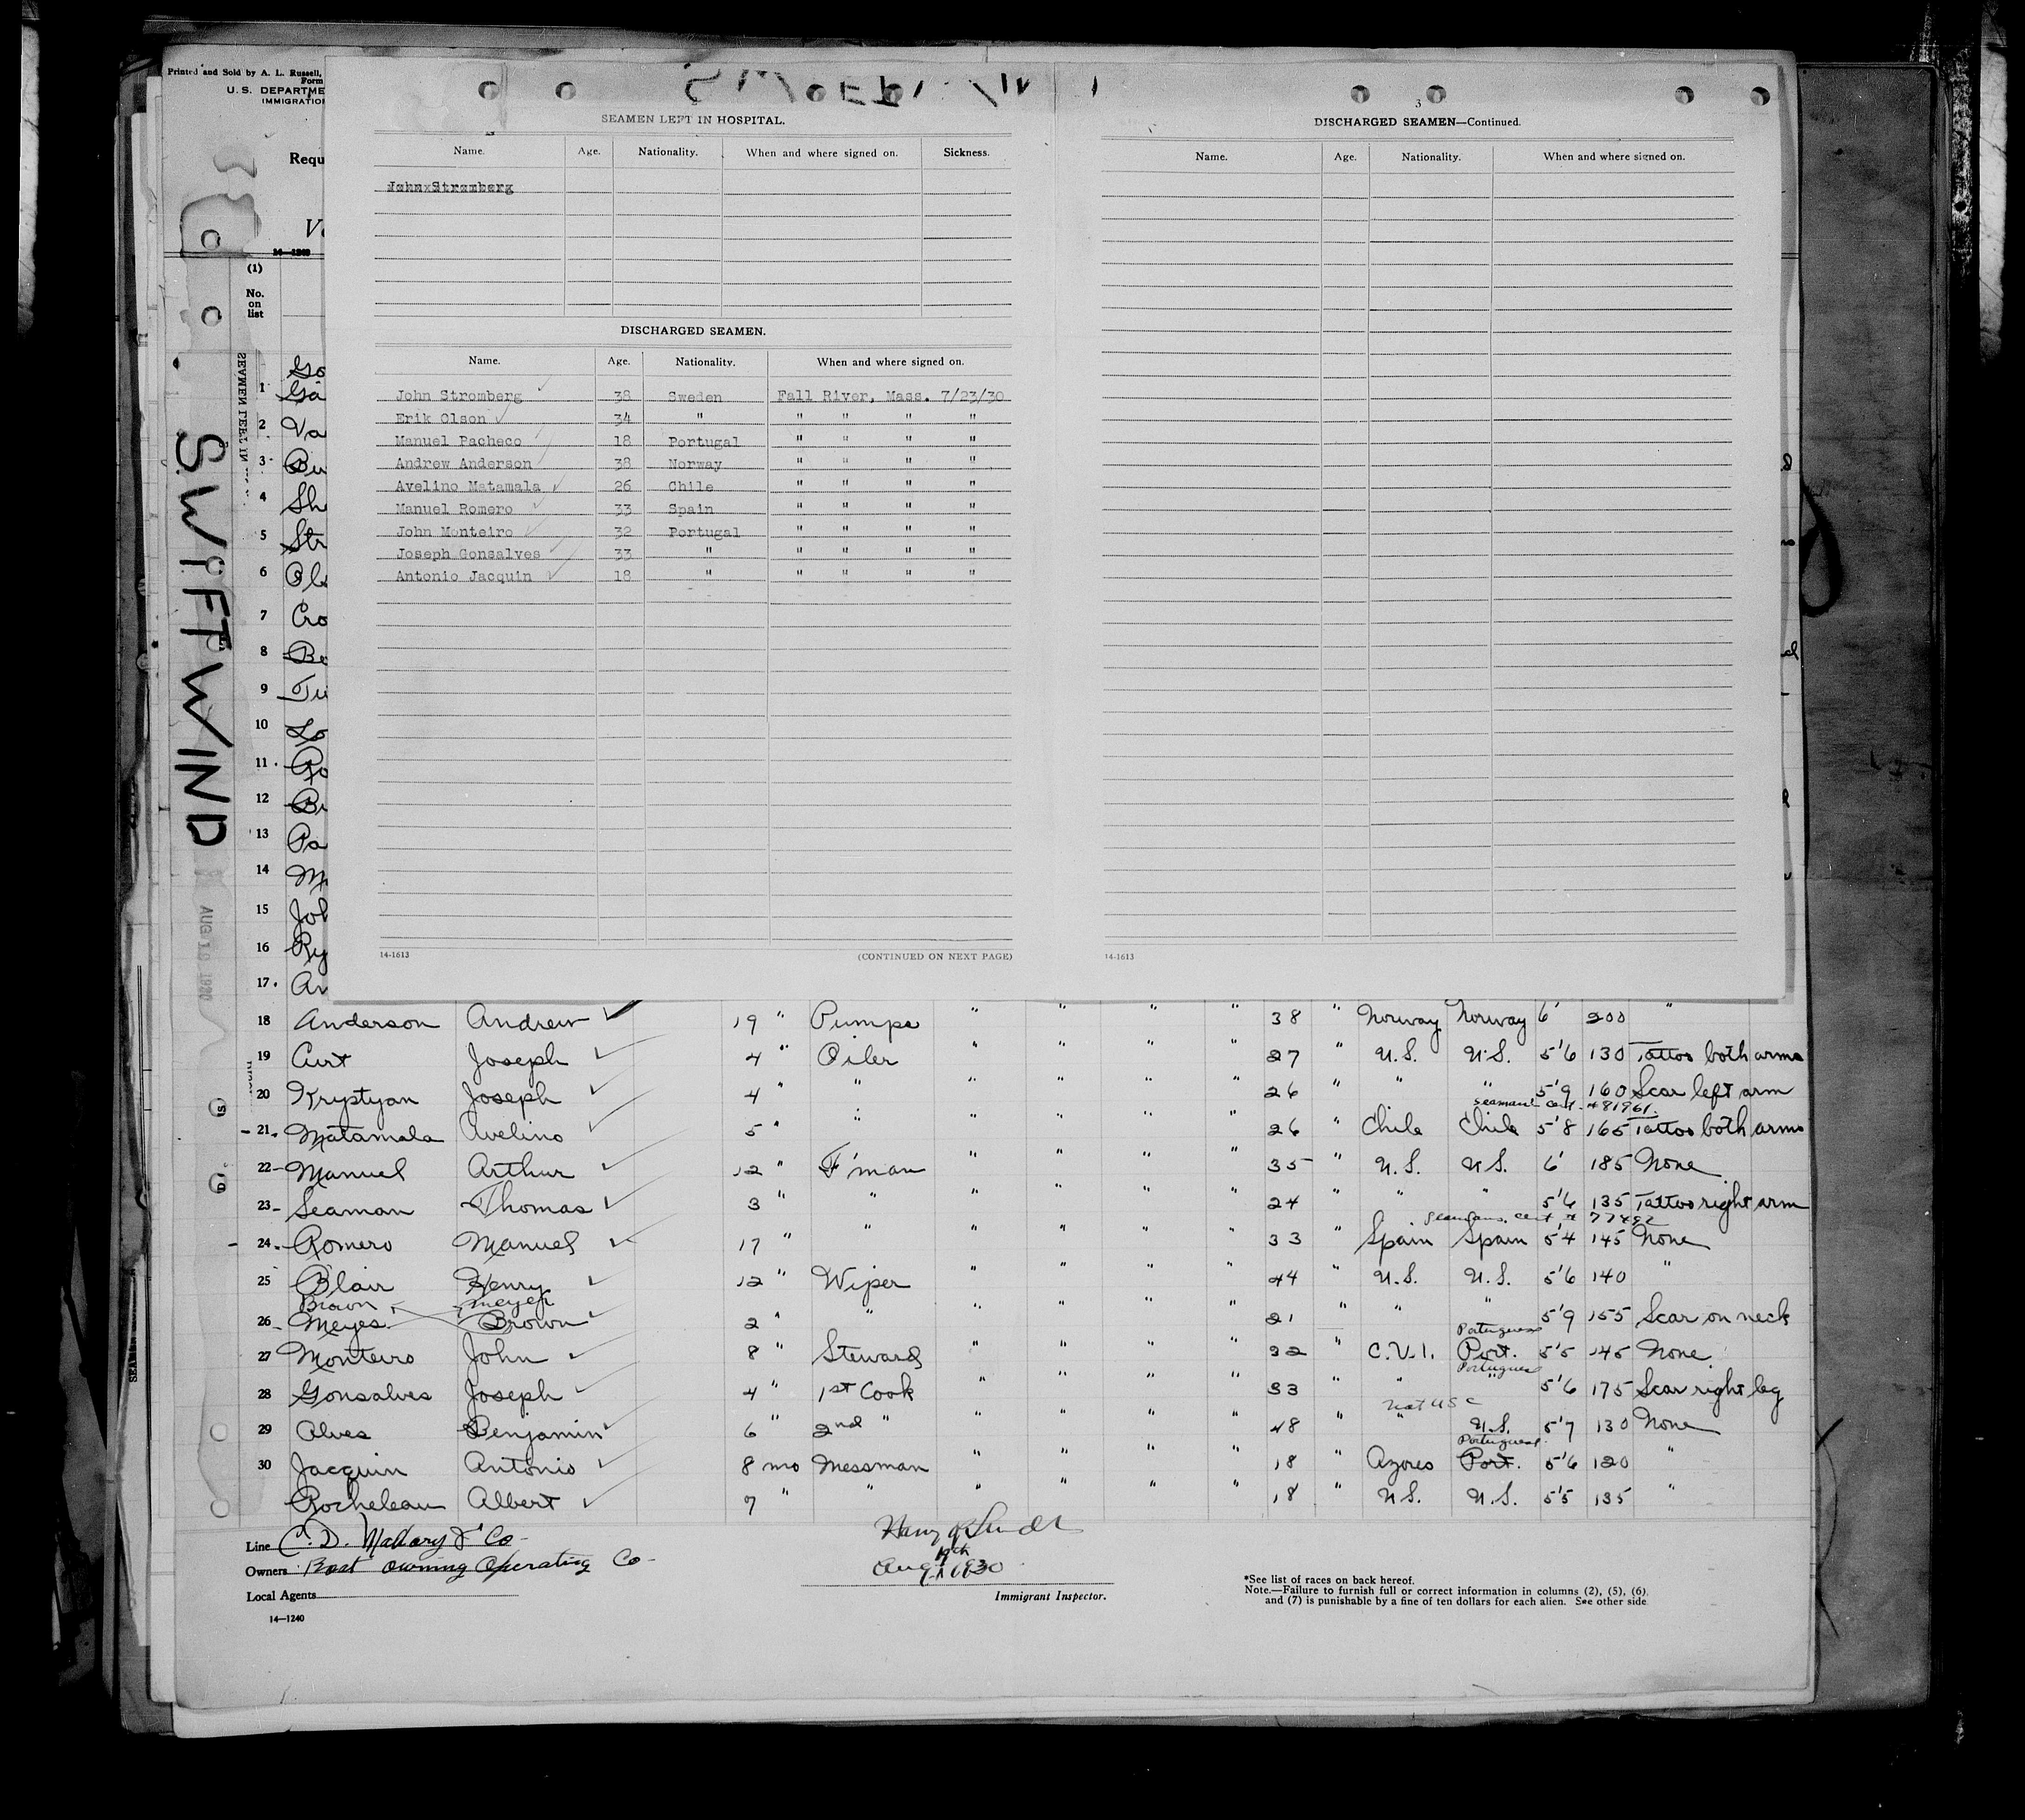 Printed and Sold by A. L. Russell,
Form
U. S. DEPARTME
IMMIGRATION
Requ
14—1240
(1)
No.
on
list
SWIFTWIND
AUG 1930
3
SEAMEN LEFT IN HOSPITAL.
Name. Age. Nationality. When and where signed on. Sickness.
John Stromberg
DISCHARGED SEAMEN.
Name. Age. Nationality. When and where signed on.
John Stromberg 38 Sweden Fall River, Mass. 7/23/30
Erik Olson 34 " " " " "
Manuel Pacheco 18 Portugal " " " "
Andrew Anderson 38 Norway " " " "
Avelino Matamala 26 Chile " " " "
Manuel Romero 33 Spain " " " "
John Monteiro 32 Portugal " " " "
Joseph Gonsalves 33 " " " " "
Antonio Jacquin 18 " " " " "
14-1613 (CONTINUED ON NEXT PAGE)
DISCHARGED SEAMEN—Continued.
Name. Age. Nationality. When and where signed on.
14-1613
1 Ga
2 Va
3 Bu
4 Sh
5 Str
6 Ole
7 Cro
8 Be
9 Tu
10 Lo
11 Ro
12 Br
13 Pa
14 M
15 Joh
16 Ry
17 An
18 Anderson Andrew 19 " Pumps " " " " 38 " Norway Norway 6' 200 "
19 Curt Joseph 4 " Oiler " " " " 27 " U.S. U.S. 5'6 130 Tattoo both arms
20 Krystyan Joseph 4 " " " " " " 26 " " " 5'9 160 Scar left arm
seamans cert #81961
21 Matamala Avelino 5 " " " " " " 26 " Chile Chile 5'8 165 Tattoo both arms
22 Manuel Arthur 12 " F'man " " " " 35 " U.S. U.S. 6' 185 None
23 Seaman Thomas 3 " " " " " " 24 " " " 5'6 135 Tattoo right arm
seamans cert # 77492
24 Romero Manuel 17 " " " " " " 33 " Spain Spain 5'4 145 None
25 Blair Henry 12 " Wiper " " " " 44 " U.S. U.S. 5'6 140 "
Brown Meyer
26 Meyes Brown 2 " " " " " " 21 " " " 5'9 155 Scar on neck
Portuguese
27 Monteiro John 8 " Steward " " " " 32 " C.V.I. Port. 5'5 145 None
Portuguese
28 Gonsalves Joseph 4 " 1st Cook " " " " 33 " " " 5'6 175 Scar right leg
not USC
29 Alves Benjamin 6 " 2nd " " " " " 48 " " U.S. 5'7 130 None
Portuguese
30 Jacquin Antonio 8 mo Messman " " " " 18 " Azores Port. 5'6 120 "
Rocheleau Albert 7 " " " " " " 18 " U.S. U.S. 5'5 135 "
Line C. D. Mallory & Co
Owners Boat Owning Operating Co
Local Agents
14—1240
19th
Aug 1930
Immigrant Inspector.
*See list of races on back hereof.
Note.—Failure to furnish full or correct information in columns (2), (5), (6),
and (7) is punishable by a fine of ten dollars for each alien. See other side